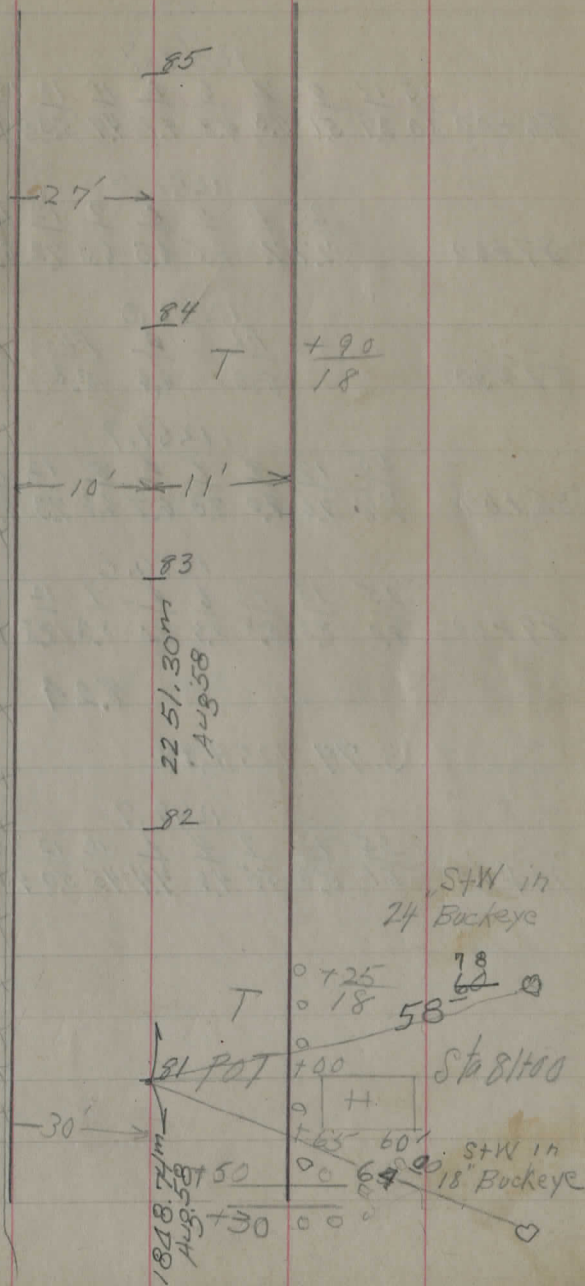 85
27'
84
T +90
18
10' 11'
83
2251.30m
Aug.58
82
S+W in
24 Buckeye
78
60
+25
T 18
58
81 POT +00 Sta 81+00
H
30'
+65 60'
S+W in
18" Buckeye
+50
+30
1848.74m
Aug.58